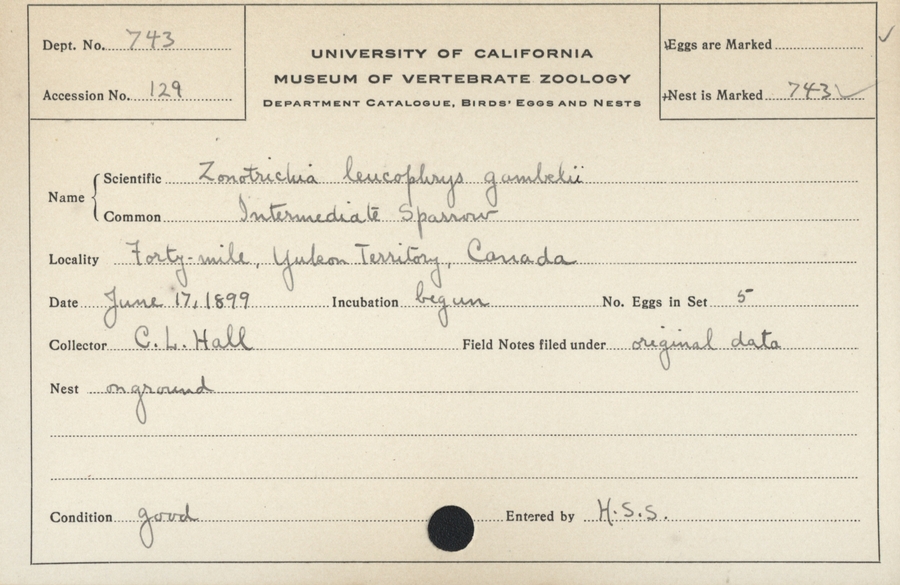 Dept. No. 743
UNIVERSITY OF CALIFORNIA
MUSEUM OF VERTEBRATE ZOOLOGY
DEPARTMENT CATALOGUE, BIRDS' EGGS AND NESTS
Eggs are Marked ✓
Accession No. 129
Nest is Marked 743 ✓
Name { Scientific Zonotrichia leucophrys gambelii
Common Intermediate Sparrow
Locality Forty-mile, Yukon Territory, Canada
Date June 17, 1899 Incubation begun No. Eggs in Set 5
Collector C. L. Hall Field Notes filed under original data
Nest on ground
Condition good Entered by H.S.S.